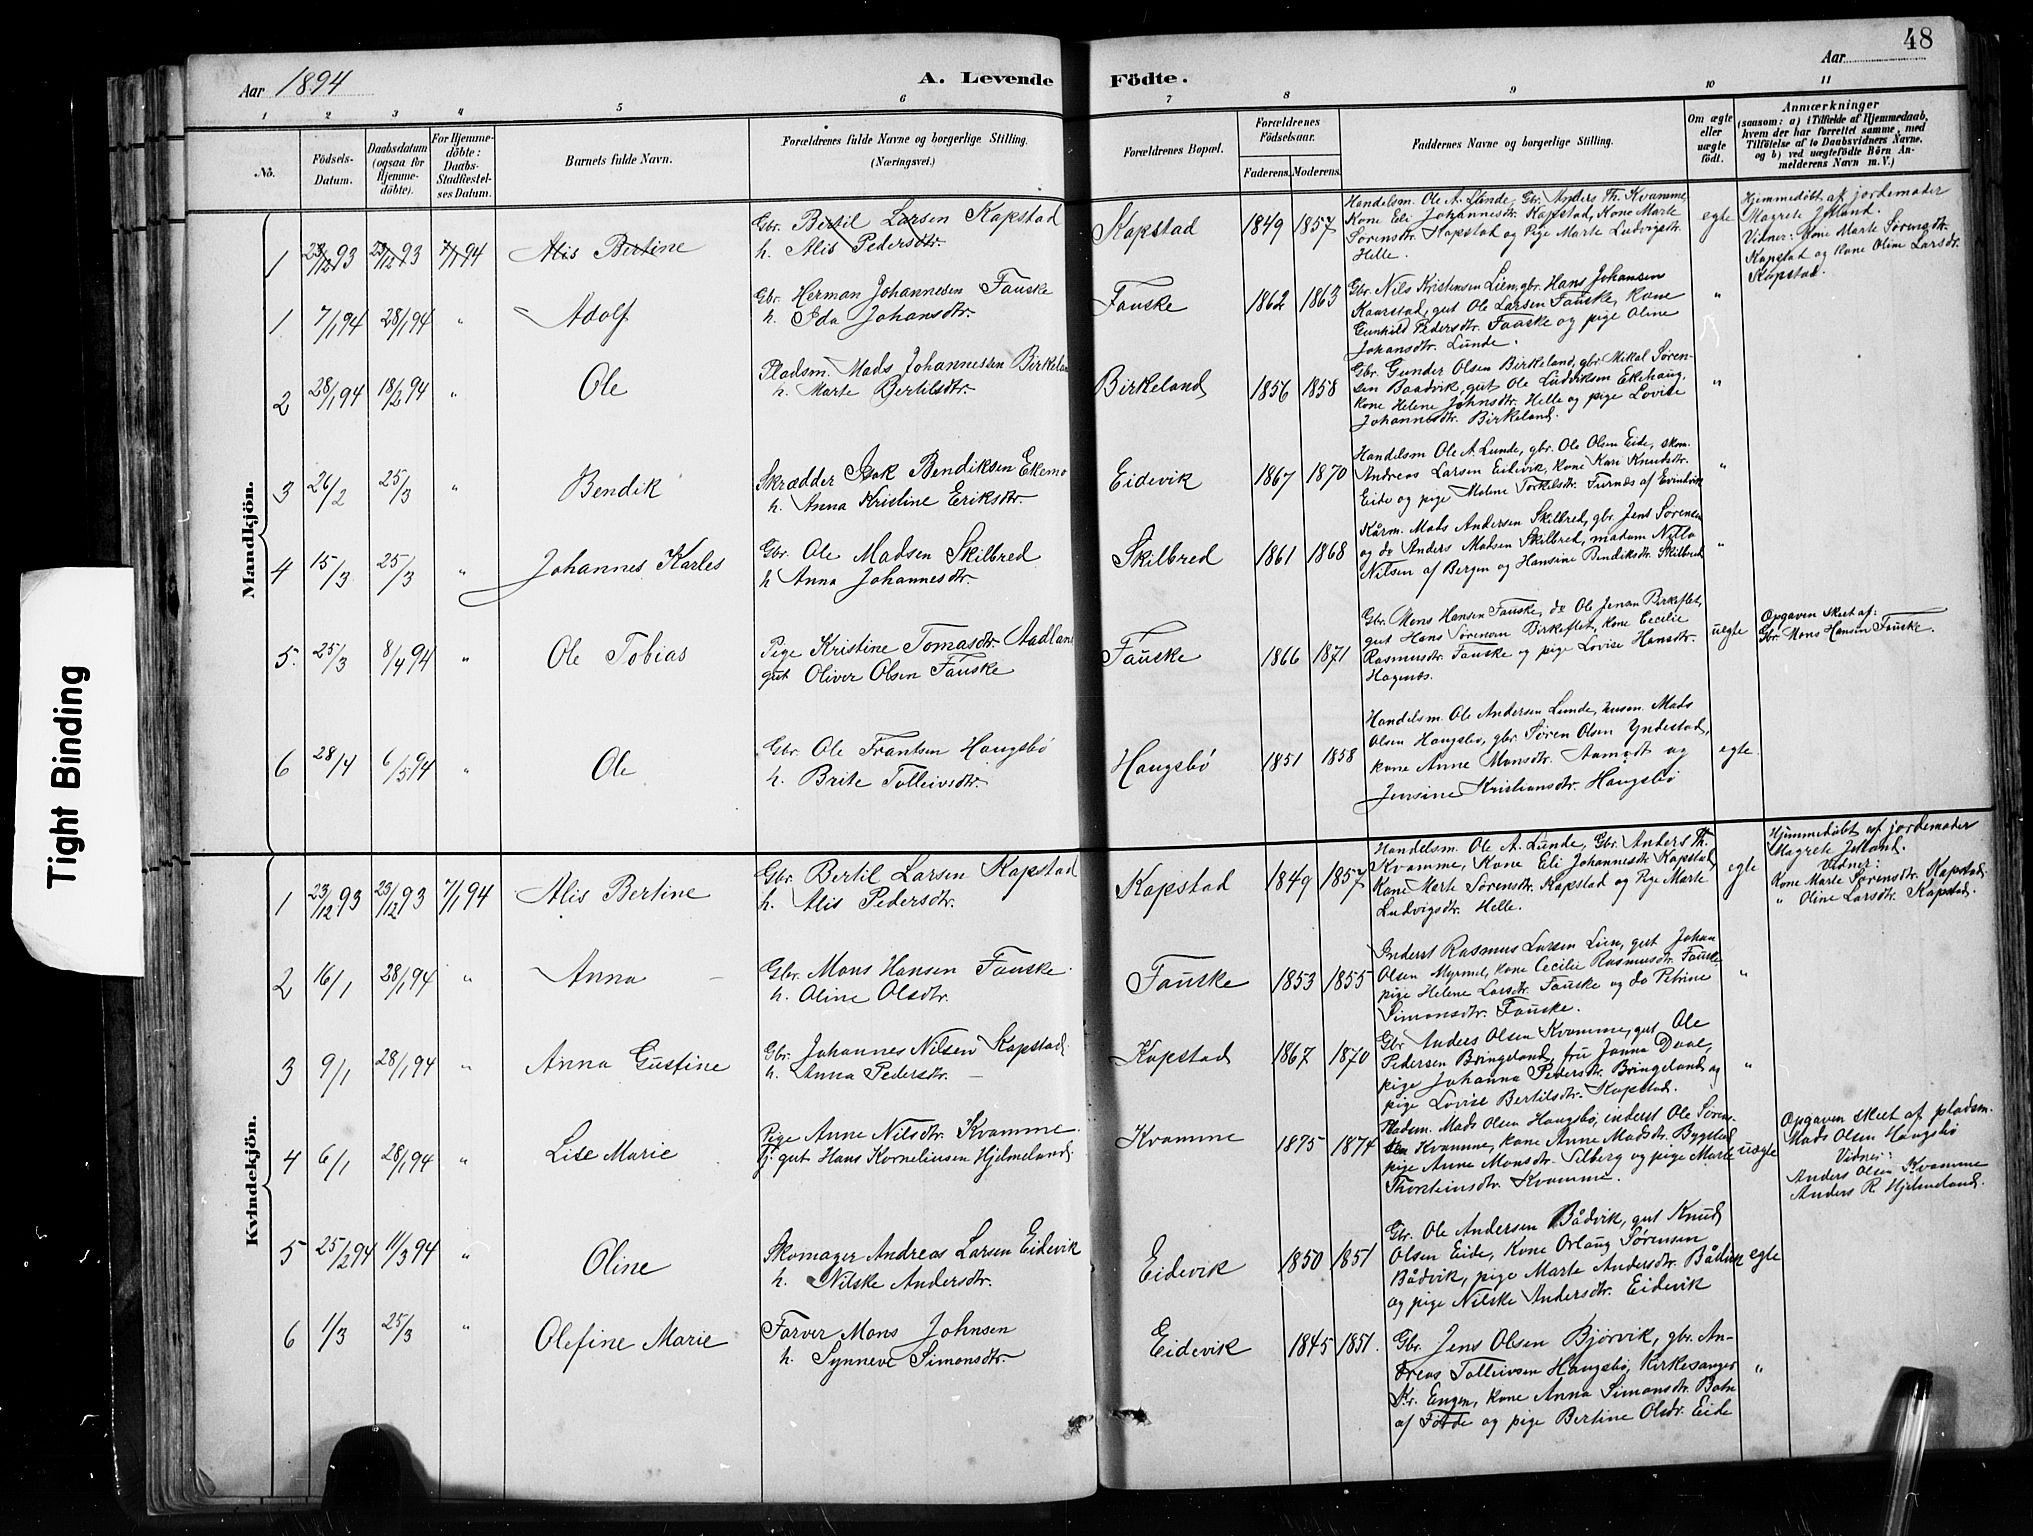 48
Aar 1894
A. Levende Födte.
Aar
1 2 3 4 5 6 7 8 9 10 11
No.
Födsels-Datum.
Daabsdatum (ogsaa for Hjemmedöbte).
For Hjemmedöbte: Daabs Stadfæstelses Datum.
Barnets fulde Navn.
Forældrenes fulde Navne og borgerlige Stilling. (Næringsvei.)
Forældrenes Bopæl.
Forældrenes Födselsaar.
Faderens. Moderens.
Faddernes Navne og borgerlige Stilling.
Om ægte eller uægte födt.
Anmærkninger
(saasom: a) i Tilfælde af Hjemmedaab, hvem der har forrettet samme, med Tilföielse af to Daabsvidners Navne, og b) ved uægtefödte Börn Anmelderens Navn m. V.)
Tight Binding
Mandkjön.
1 23/12 93 23/12 93 7/1 94 Alis Bertine
Gbr. Bertil Larsen Kapstad
h. Alis Pedersdtr.
Kapstad 1849 1857
Handelsm. Ole A. Lunde, Gbr. Anders Th. Kvamme,
Kone Eli Johannesdtr. Kapstad, Kone Marte
Sörensdtr. Kapstad og Pige Marte Ludvigsdtr.
Helle.
egte
Hjemmedöbt af jordemoder
Magrete Jtland.
Vidner: Kone Marte Sörensdtr.
Kapstad og Kone Oline Larsdtr.
Kapstad.
1 7/1 94 28/1 94 " Adolf
Gbr. Herman Johannesen Fauske
h. Ida Johansdtr.
Fauske 1862 1863
Gbr. Nils Kristensen Lien, gbr. Hans Johansen
Kaarstad, gut Ole Larsen Fauske, Kone
Gunhild Pedersdtr. Fauske og pige Oline
Johansdtr. Lunde.
"
2 28/1 94 18/2 94 " Ole
Pladsm. Mads Johannesen Birkeland
h. Marte Bertilsdtr.
Birkeland 1856 1858
Gbr. Gunder Olsen Birkeland, gbr. Mikal Sören-
sen Baadvik, gut Ole Ludviksen Ekehaug,
kone Helene Johnsdtr. Helle og pige Lovise
Johannesdtr. Birkeland.
"
3 26/2 25/3 " Bendik
Skrædder Isak Bendiksen Ekemo
h. Anna Kristine Eriksdtr.
Eidevik 1867 1870
Handelsm Ole A. Lunde, gbr. Ole Olsen Eide, skom.
Andreas Larsen Eidevik, kone Kari Knudsdtr.
Eide og pige Malene Torkilsdtr. Turnæs af Evindvik
"
4 15/3 25/3 " Johannes Karles
Gbr. Ole Madsen Skilbred
h Anna Johannesdtr.
Skilbred 1861 1868
Kårm. Mads Andersen Skilbred, gbr. Jens Sörensen
og do Anders Madsen Skilbred, madam Nilla
Nilsen af Bergen og Hansine Bendiksdtr. Skilbred
"
5. 25/3 8/4 94 " Ole Tobias
Pige Kristine Tomasdtr. Aadland
gut Oliver Olsen Fauske
Fauske 1866 1871
Gbr. Mons Hansen Fauske, do Ole Jensen Birkeflet,
gut Hans Sörensen Birkeflet, kone Cecilie
Rasmusdtr. Fauske og pige Lovise Hansdtr.
Hagenes.
uegte
Opgaven skeet af:
Gbr. Mons Hansen Fauske.
6 28/4 6/5 94 " Ole
Gbr. Ole Frantsen Haugsbö
h. Brite Tolleivsdtr.
Haugsbö 1851 1858
Handelsm. Ole Andersen Lunde, husm. Mads
Olsen Haugsbö, gbr. Sören Olsen Yndestad,
kone Anne Monsdtr. Aamodt og
Jensine Kristiansdtr. Haugsbö
egte
Kvindekjön.
1 23/12 93 23/12 93 7/1 94 Alis Bertine
Gbr. Bertil Larsen Kapstad
h. Alis Pedersdtr.
Kapstad 1849 1857
Handelsm. Ole A. Lunde, Gbr. Anders Th.
Kvamme, Kone Eli Johannesdtr Kapstad,
Kone Marte Sörensdtr. Kapstad og Pige Marte
Ludvigsdtr. Helle.
egte
Hjemmedöbt af jordemoder
Magrete Jtland.
Vidner:
Kone Marte Sörensdtr. Kapstad.
" Oline Larsdtr. Kapstad.
2 16/1 28/1 94 " Anna
Gbr. Mons Hansen Fauske.
h. Oline Olsdtr.
Fauske 1853 1855
Inderst Rasmus Larsen Lien, gut Johan
Olsen Myrmel, kone Cecilie Rasmusdtr. Fauske
pige Helene Larsdtr. Fauske og do Petrine
Simonsdtr. Fauske.
"
3 9/1 28/1 94 " Anna Gustine
Gbr. Johannes Nilsen Kapstad.
h. Anna Pedersdtr.
Kapstad 1867 1870
Gbr Anders Olsen Kvamme, gut Ole
Pedersen Bringeland, fru Janna Daae,
pige Johanna Pedersdtr. Bringeland og
pige Lovise Bertilsdtr. Kapstad.
"
4 6/1 28/1 94 " Lise Marie
Pige Anne Nilsdtr. Kvamme.
gut Hans Korneliusen Hjelmeland.
Kvamme 1875 1874
Pladsm. Mads Olsen Haugsbö, inderst Ole Sören-
sen Kvamme, kone Anne Madsdtr. Bygstad,
pige Anne Monsdtr. Solberg og pige Marte
Thorsteinsdtr. Kvamme.
uegte
Opgaven skeet af pladsm.
Mads Olsen Haugsbö
Vidner:
Anders Olsen Kvamme
Anders R. Hjelmeland.
5 25/2 94 11/3 94 " Oline
Skomager Andreas Larsen Eidevik
h. Nilske Andersdtr.
Eidevik 1850 1851
Gbr. Ole Andersen Bådvik, gut Knud
Olsen Eide, Kone Orlaug Sörensen
Bådvik, pige Marte Andersdtr. Bådvik
og pige Nilske Andersdtr. Eidevik
egte
6 1/3 25/3 " Olefine Marie
Farver Mons Johnsen
h. Synneve Simonsdtr.
Eidevik 1845 1851.
Gbr. Jens Olsen Bjorvik, gbr. An-
dreas Tolleivsen Haugsbö, Kirkesanger
Kr. Engen, kone Anna Simonsdtr. Botn
af Förde og pige Bertine Olsdr. Eide
"